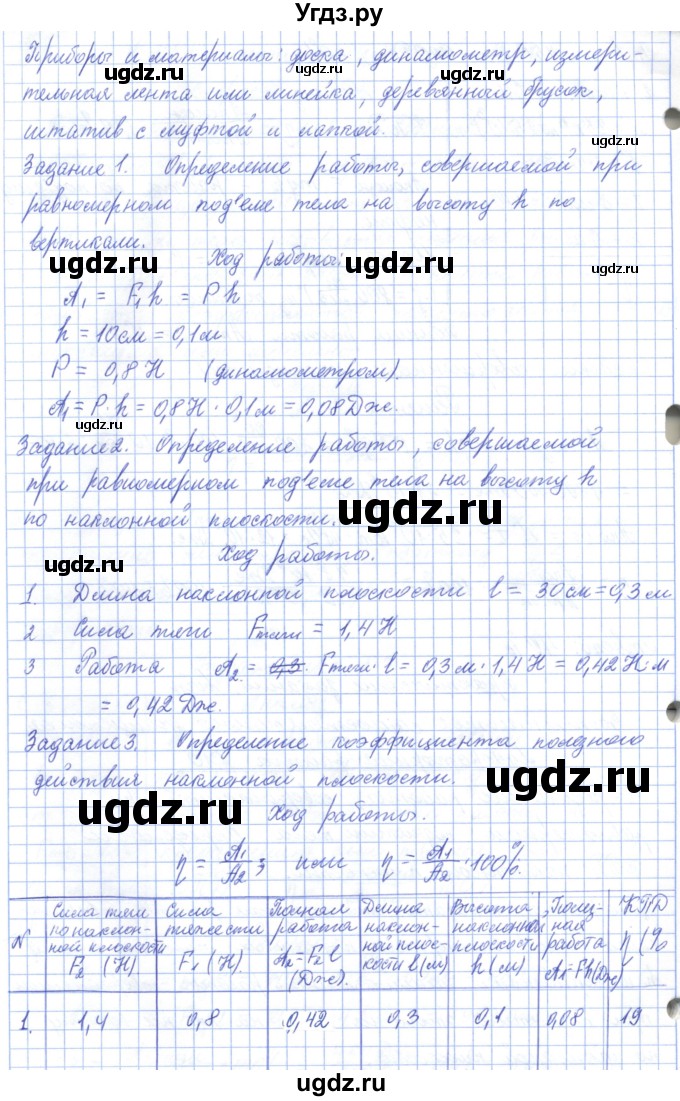 Угдз.ру
Приборы и материалы: доска, динамометр, измери-
тельная лента или линейка, деревянный брусок,
штатив с муфтой и лапкой.
Задание 1. Определение работы, совершаемой при
равномерном под'еме тела на высоту h по
вертикали.
Ход работы:
A₁ = F₁h = Ph
h = 10см = 0,1м
P = 0,8Н (динамометром).
A₁ = P·h = 0,8Н · 0,1м = 0,08Дж.
Задание 2. Определение работы, совершаемой
при равномерном под'еме тела на высоту h
по наклонной плоскости.
Ход работы.
1. Длина наклонной плоскости l = 30см = 0,3м
2 Сила тяги Fтяги = 1,4Н
3 Работа A₂ = 0,3 Fтяги·l = 0,3м·1,4Н = 0,42Н·м
= 0,42Дж.
Задание 3. Определение коэффициента полезного
действия наклонной плоскости.
Ход работы.
η = A₁/A₂; или η = A₁/A₂·100%.
N Сила тяги по наклон-ной плоскости F₂ (Н) Сила тяжести F₁ (Н). Полная работа A₂=F₂l (Дж). Длина наклон-ной плос-кости l (м) Высота наклонной плоскости h (м) Полез-ная работа A₁=Fh(Дж) КПД η (%
1. 1,4 0,8 0,42 0,3 0,1 0,08 19
ugdz.ru
ugdz.ru
ugdz.ru
ugdz.ru
ugdz.ru
ugdz.ru
ugdz.ru
ugdz.ru
ugdz.ru
ugdz.ru
ugdz.ru
ugdz.ru
ugdz.ru